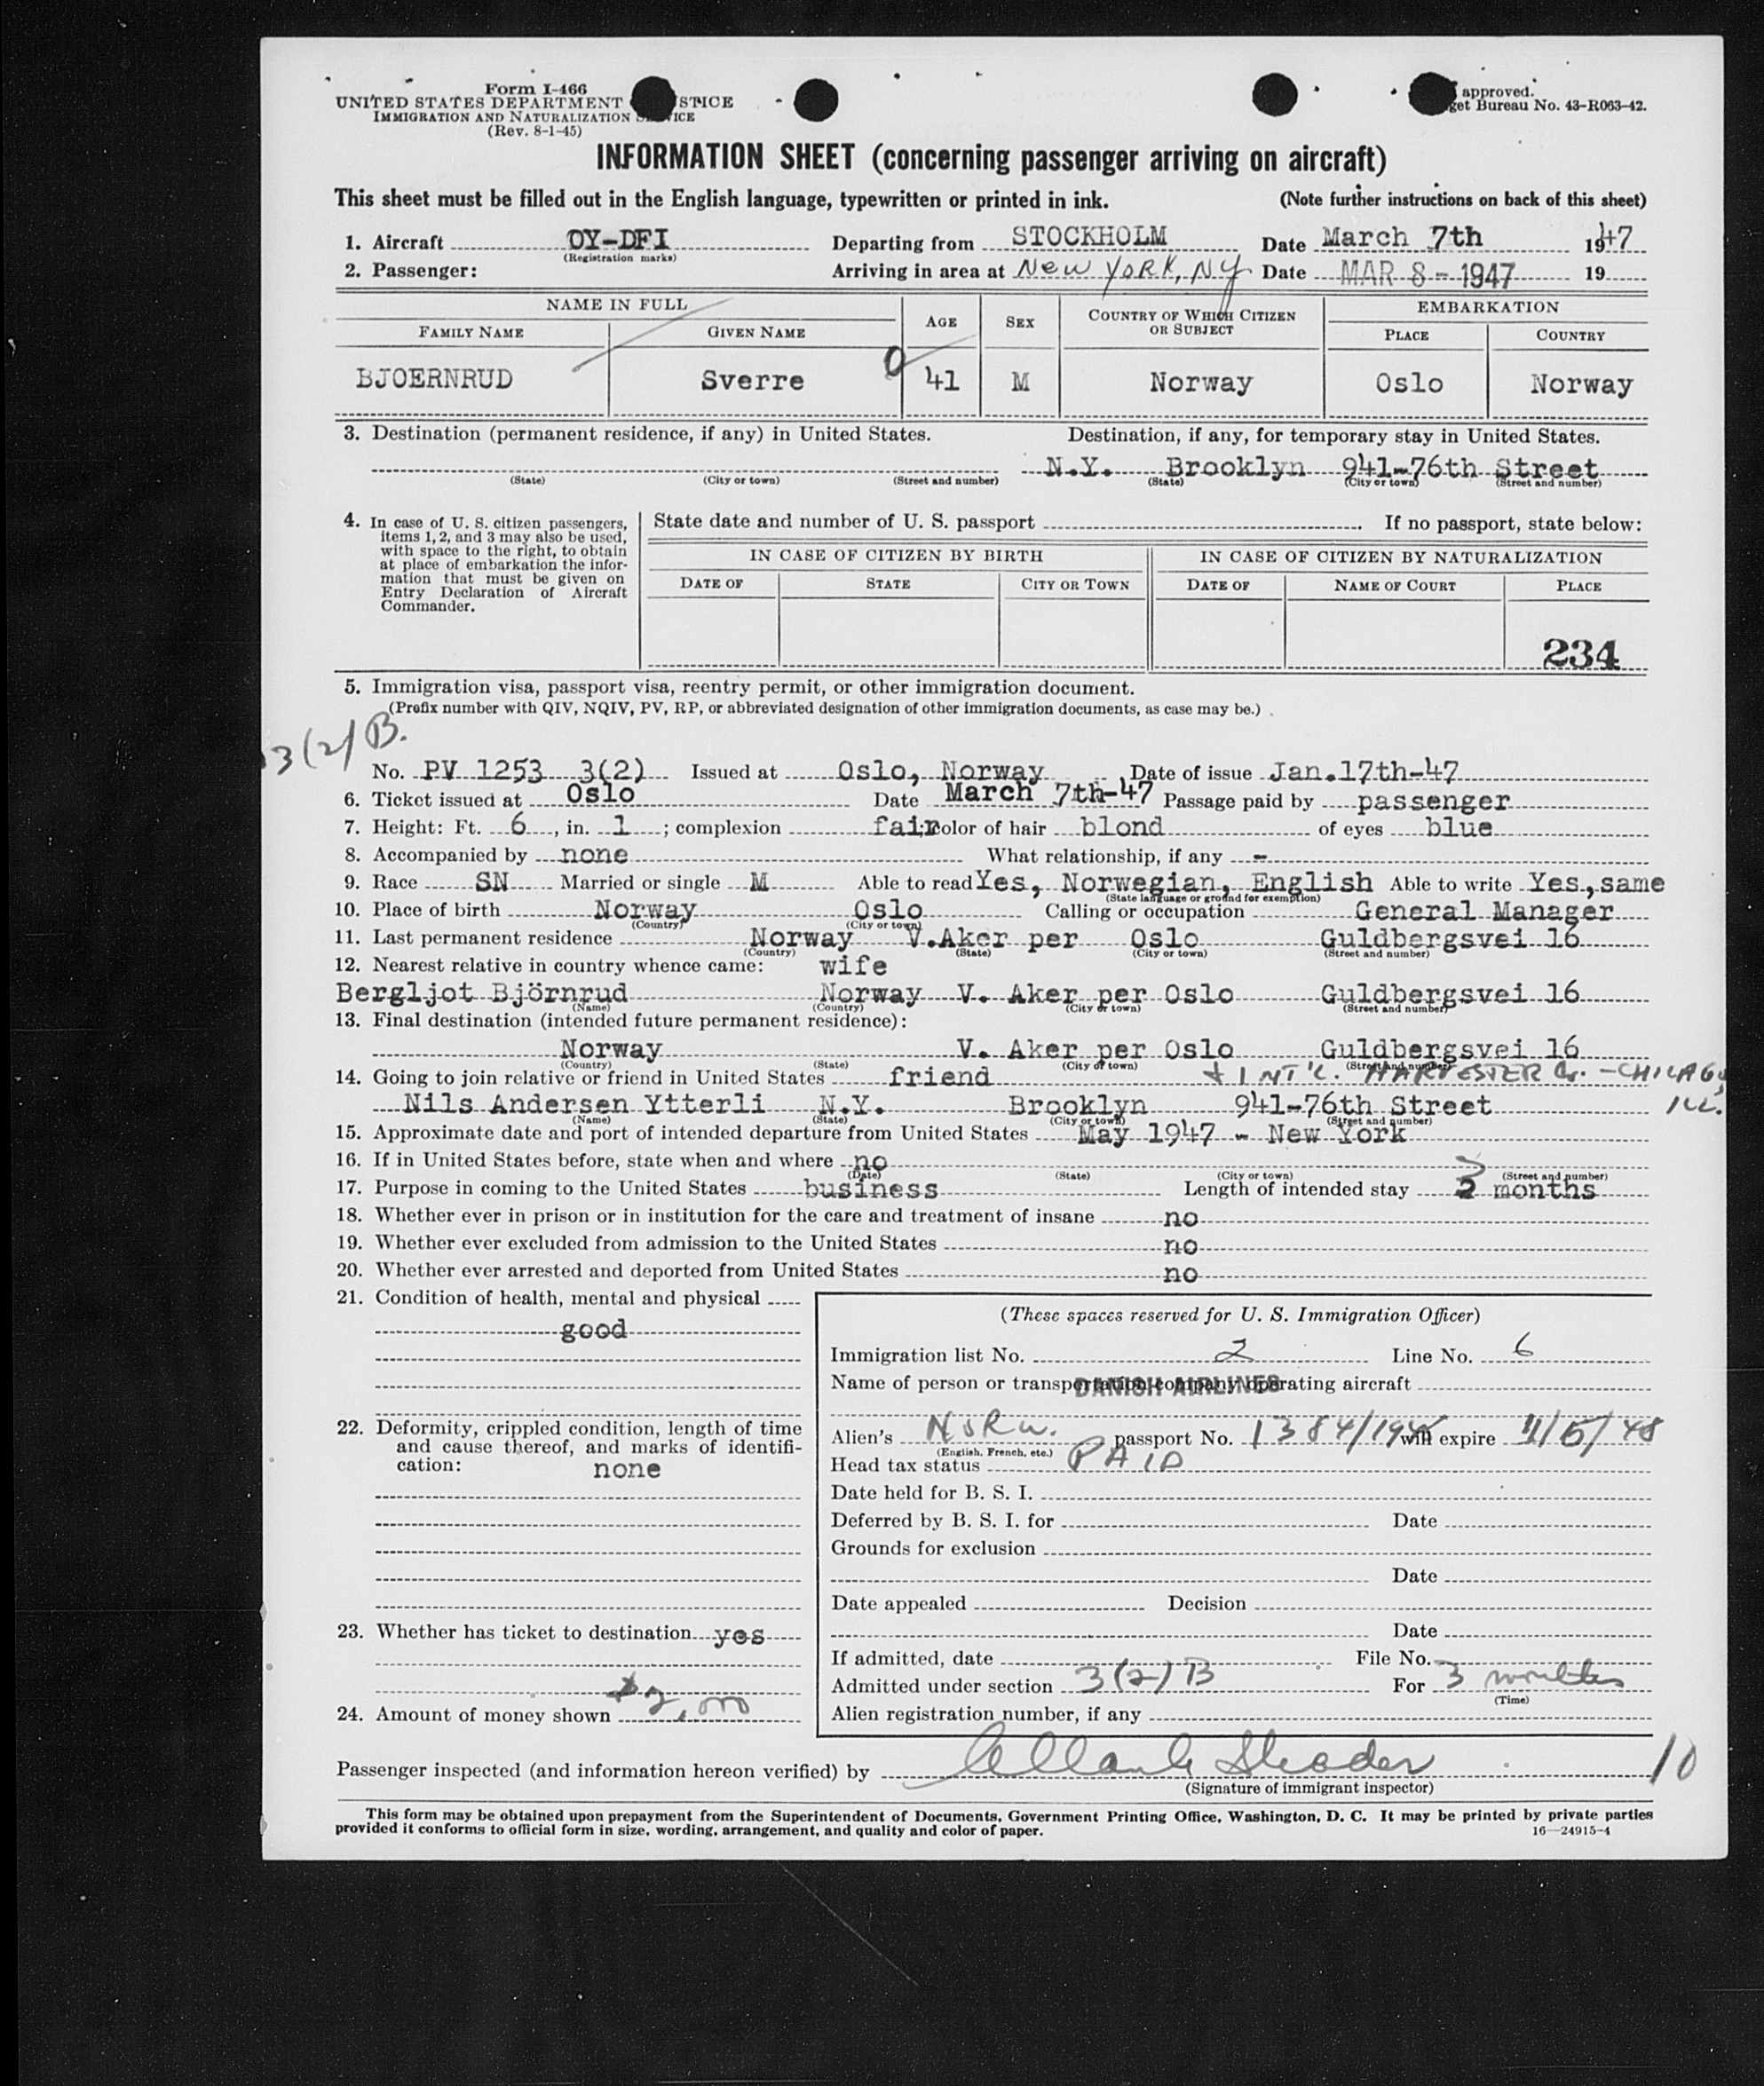 Form I-466
UNITED STATES DEPARTMENT STICE
IMMIGRATION AND NATURALIZATION ICE
(Rev. 8-1-45)
approved.
get Bureau No. 43-R063-42.
INFORMATION SHEET (concerning passenger arriving on aircraft)
This sheet must be filled out in the English language, typewritten or printed in ink. (Note further instructions on back of this sheet)
1. Aircraft OY-DFI Departing from STOCKHOLM Date March 7th 1947
(Registration marks)
2. Passenger: Arriving in area at New York, NY Date MAR 8 - 1947 19
NAME IN FULL AGE SEX COUNTRY OF WHICH CITIZEN OR SUBJECT EMBARKATION
FAMILY NAME GIVEN NAME PLACE COUNTRY
BJOERNRUD Sverre 0 41 M Norway Oslo Norway
3. Destination (permanent residence, if any) in United States. Destination, if any, for temporary stay in United States.
N.Y. Brooklyn 941-76th Street
(State) (City or town) (Street and number) (State) (City or town) (Street and number)
4. In case of U. S. citizen passengers, items 1, 2, and 3 may also be used, with space to the right, to obtain at place of embarkation the information that must be given on Entry Declaration of Aircraft Commander.
State date and number of U. S. passport If no passport, state below:
IN CASE OF CITIZEN BY BIRTH IN CASE OF CITIZEN BY NATURALIZATION
DATE OF STATE CITY OR TOWN DATE OF NAME OF COURT PLACE
234
5. Immigration visa, passport visa, reentry permit, or other immigration document.
(Prefix number with QIV, NQIV, PV, RP, or abbreviated designation of other immigration documents, as case may be.)
3(2)B.
No. PV 1253 3(2) Issued at Oslo, Norway Date of issue Jan.17th-47
6. Ticket issued at Oslo Date March 7th-47 Passage paid by passenger
7. Height: Ft. 6, in. 1; complexion fair; color of hair blond of eyes blue
8. Accompanied by none What relationship, if any -
9. Race SN Married or single M Able to read Yes, Norwegian, English Able to write Yes, same
(State language or ground for exemption)
10. Place of birth Norway Oslo Calling or occupation General Manager
(Country) (City or town)
11. Last permanent residence Norway V.Aker per Oslo Guldbergsvei 16
(Country) (State) (City or town) (Street and number)
12. Nearest relative in country whence came: wife
Bergljot Björnrud Norway V. Aker per Oslo Guldbergsvei 16
(Name) (Country) (City or town) (Street and number)
13. Final destination (intended future permanent residence):
Norway V. Aker per Oslo Guldbergsvei 16
(Country) (State) (City or town) (Street and number)
14. Going to join relative or friend in United States friend + INT'L. HARVESTER Co. - CHICAGO, ILL.
Nils Andersen Ytterli N.Y. Brooklyn 941-76th Street
(Name) (State) (City or town) (Street and number)
15. Approximate date and port of intended departure from United States May 1947 - New York
16. If in United States before, state when and where no
(Date) (State) (City or town) (Street and number)
17. Purpose in coming to the United States business Length of intended stay 3 months
18. Whether ever in prison or in institution for the care and treatment of insane no
19. Whether ever excluded from admission to the United States no
20. Whether ever arrested and deported from United States no
21. Condition of health, mental and physical
good
22. Deformity, crippled condition, length of time and cause thereof, and marks of identification: none
23. Whether has ticket to destination yes
24. Amount of money shown $2,000
(These spaces reserved for U. S. Immigration Officer)
Immigration list No. 2 Line No. 6
Name of person or transportation company operating aircraft
DANISH AIRLINES
Alien's Norw. passport No. 1384/194 will expire 11/5/48
(English, French, etc.)
Head tax status PAID
Date held for B. S. I.
Deferred by B. S. I. for Date
Grounds for exclusion
Date
Date appealed Decision
Date
If admitted, date File No.
Admitted under section 3(2)B For 3 months
(Time)
Alien registration number, if any
Passenger inspected (and information hereon verified) by 10
(Signature of immigrant inspector)
This form may be obtained upon prepayment from the Superintendent of Documents, Government Printing Office, Washington, D. C. It may be printed by private parties
provided it conforms to official form in size, wording, arrangement, and quality and color of paper. 16—24915-4